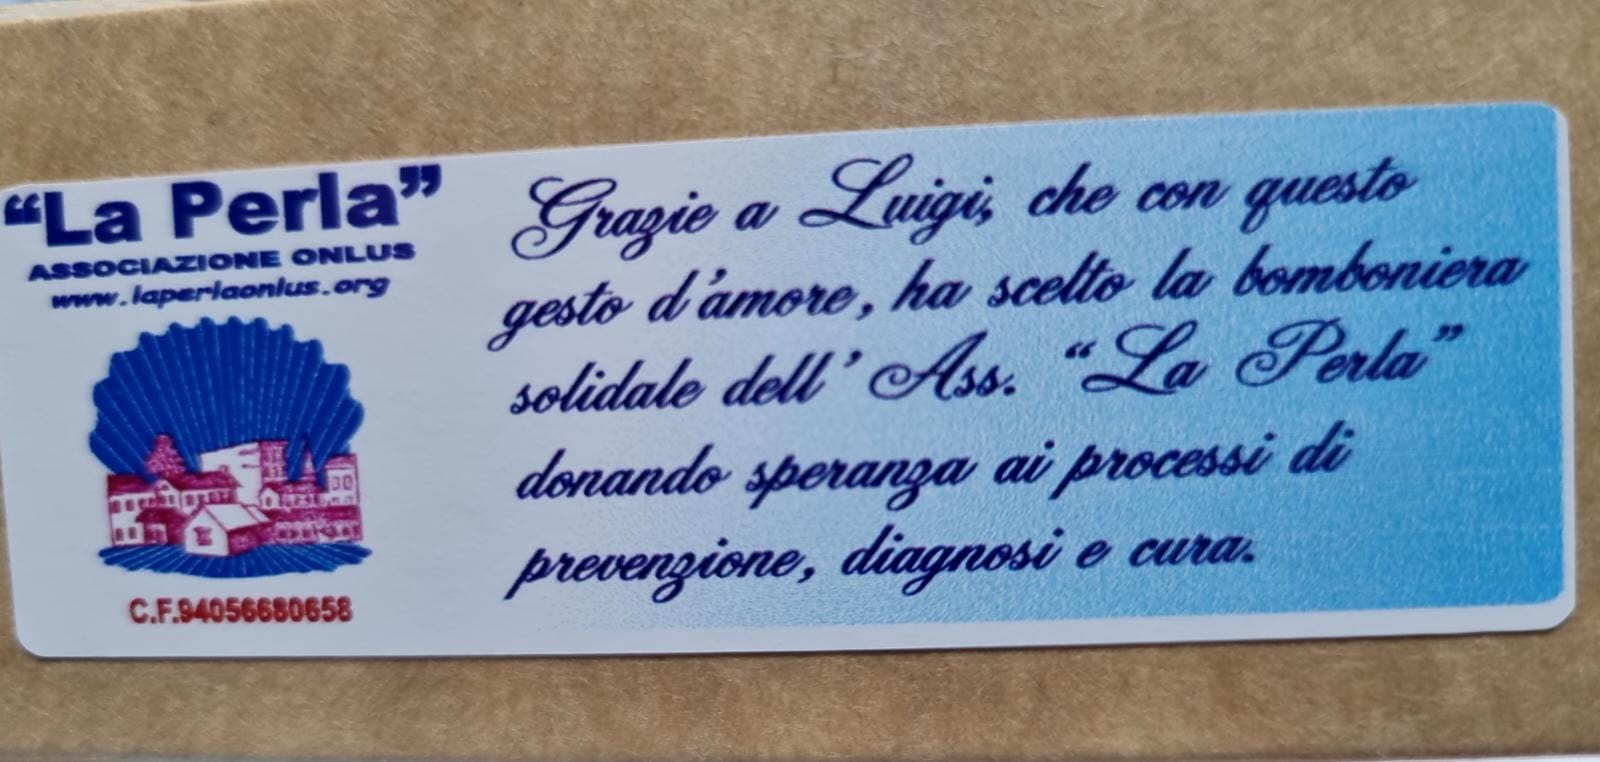 “La Perla”
ASSOCIAZIONE ONLUS
www.laperlaonlus.org
C.F.94056680658
Grazie a Luigi, che con questo
gesto d'amore, ha scelto la bomboniera
solidale dell' Ass. “La Perla”
donando speranza ai processi di
prevenzione, diagnosi e cura.